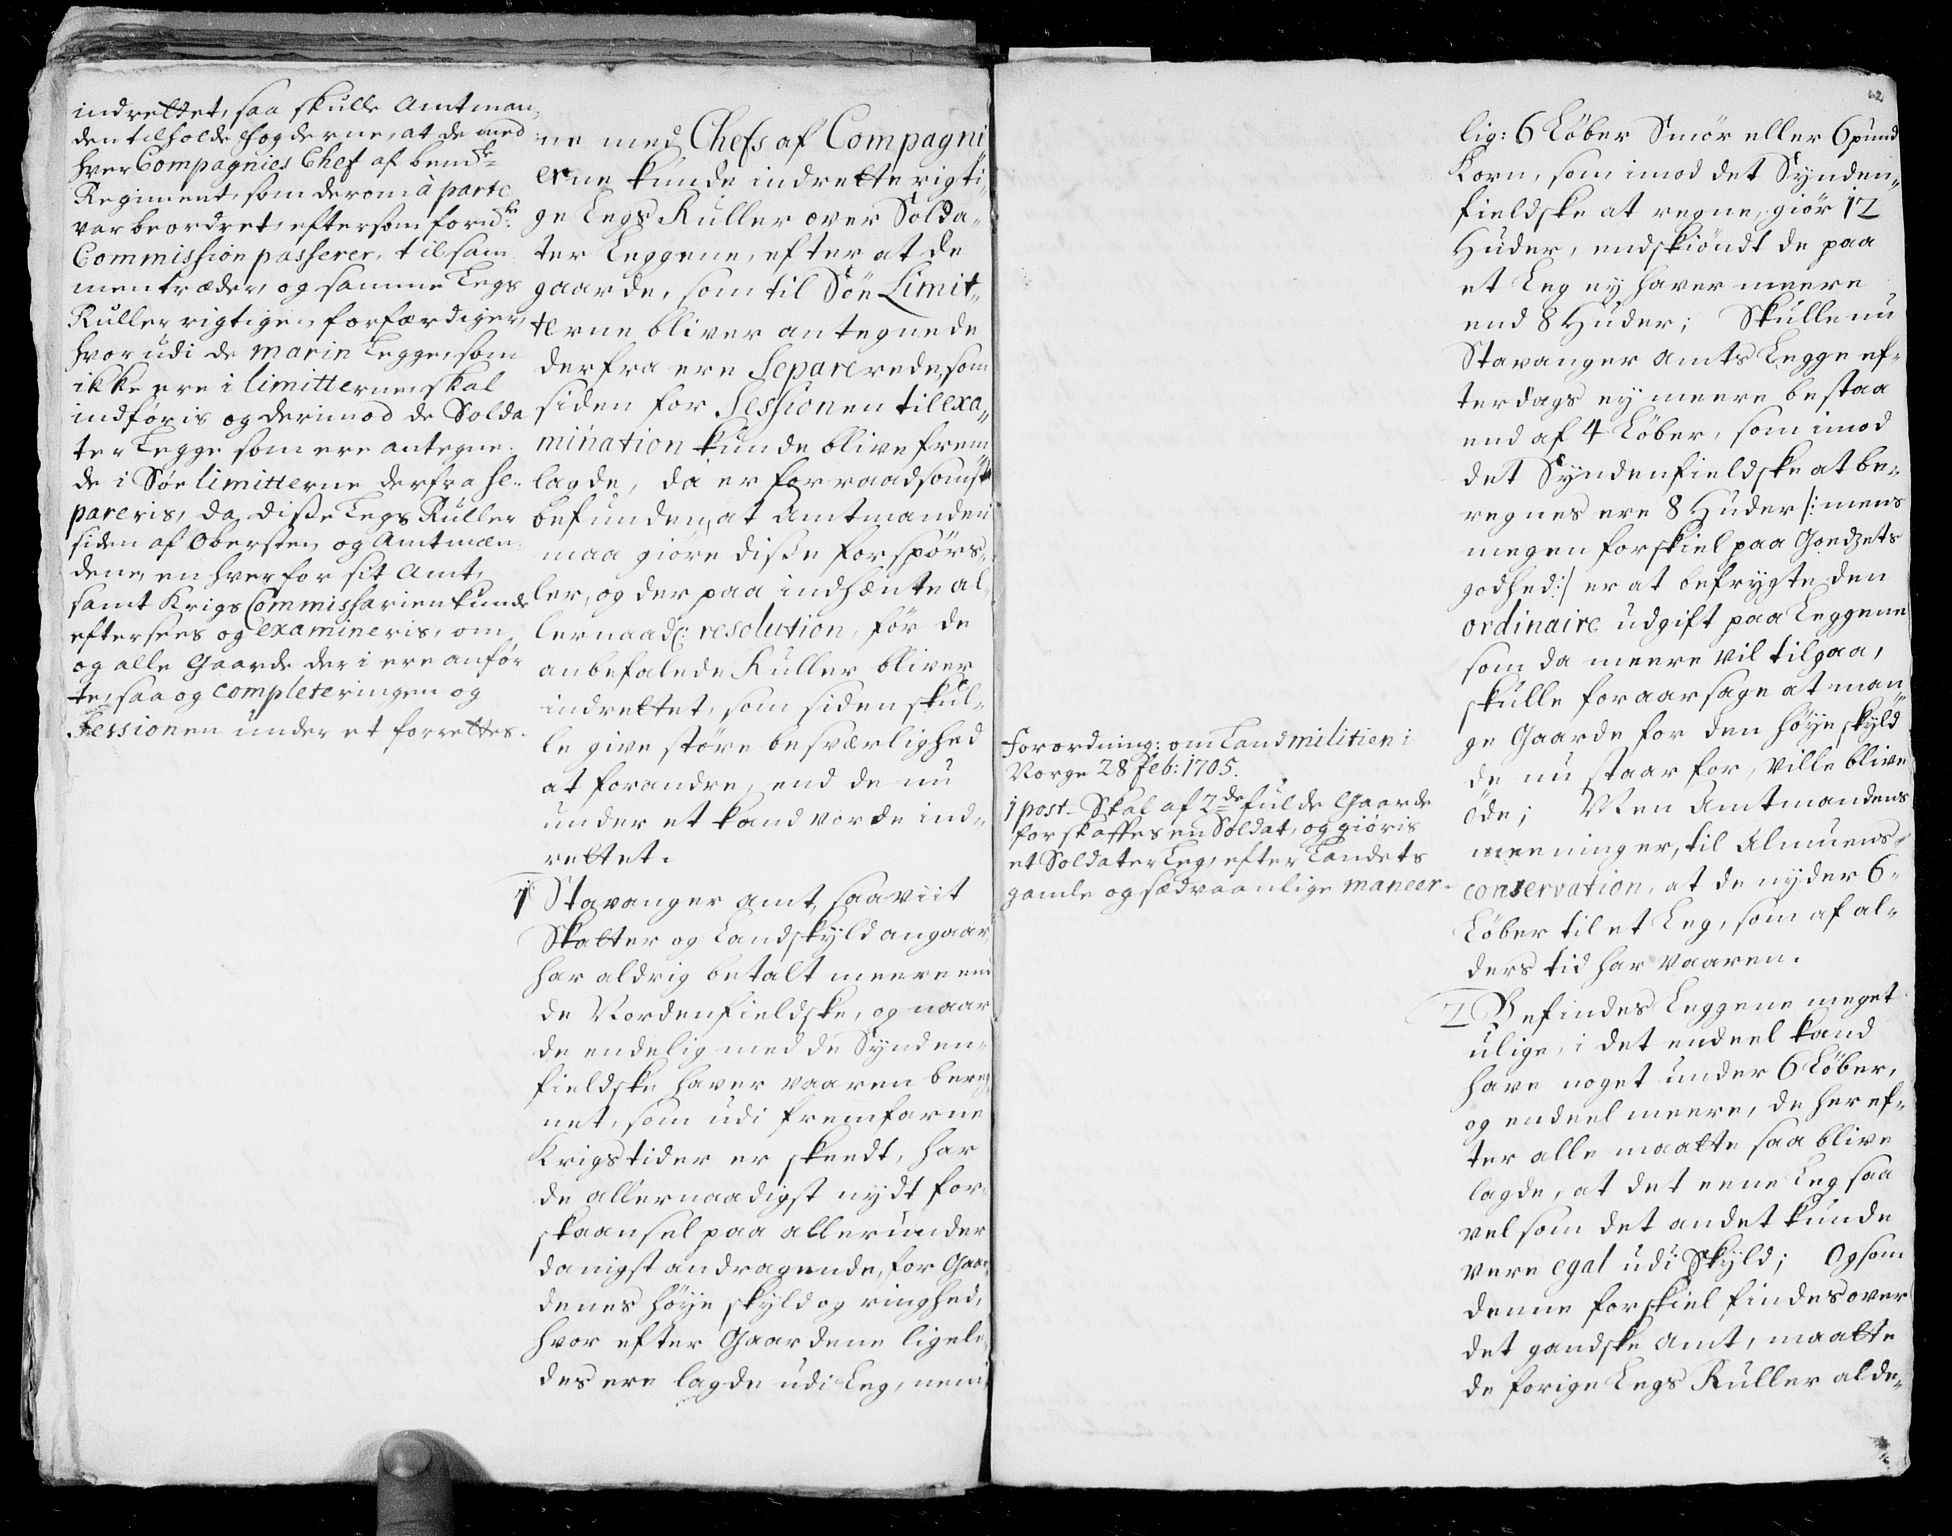 indrettet, saa skulle Amtman,,
den tilholde fogderne, at de med
hver Compagnies Chef af bemte
Regiment, som derom à parte
var beordret, eftersom formte
Commission passerer, tilsam
mentræder, og samme Legs
Ruller rigtigen forfærdiger,
hvor udi de marin Legge, som
ikke ere i limitterne, skal
indføris og derimod de Solda
ter Legge som ere antegne,,
de i Søe limitterne derfra se,,
pareris, da disse Legs Ruller
siden af Obersten og Amtmæn
dene, en hver for sit Amt,
samt Krigs Commissarien kunde
eftersees og examineris, om
og alle Gaarde der i ere anfør
te, saa og completeringen og
Sessionen under et forrettes.
ne med Chefs af Compagni
erne kunde indrette rigti,,
ge Legs Ruller over Solda,,
ter Leggene, efter at de
gaarde, som til Söe Limit,,
terne bliver antegnede
derfra ere Separerede, som
siden for Sessionen til exa,,
mination kunde blive frem
lagde, da er for raadsomst
befunden, at Amtmanden
maa giöre disse forspörs,,
ler, og der paa indhænte al,,
lernaad: resolution, för de
anbefalede Ruller bliver
indrettet, som siden skul,,
le give större besværlighed
at forandre, end de nu
under et kand vorde ind,,
rettet.
1 Stavanger Amt, saaviit
Skatter og Landskyld angaar,
har aldrig betalt meere end
de Nordenfieldske, og naar
de endelig med de Synden,,
fieldske haver vaaren bereg
net, som udi fremfarne
Krigstider er skeedt, har
de allernaadigst nydt for,,
skaansel paa allerunder
danigst andragende, for Gaar,,
denes höye skyld og ringhed,
hvor efter Gaardene ligele,,
des ere lagde udi Leg, nem,,
Forordning: om Landmilitien i
Norge 28 feb: 1705.
1 post. Skal af 2de fulde Gaarde
forskaffes en Soldat, og giöris
et Soldater Leg, efter Landets
gamle og sædvaanlige maneer.
62
lig: 6 Löber Smör eller 6 pund
Korn, som imod det Synden,,
fieldske at regne, giör 12
Huder, endskiöndt de paa
et Leg ey haver meere
end 8 Huder; Skulle nu
Stavanger Amts Legge ef,,
terdags ey meere bestaa
end af 4 Löber, som imod
det Syndenfieldske at be,,
regnes ere 8 Huder /: mens
megen forskiel paa Goedzets
godhed :/ er at befrygte den
ordinaire udgift paa Leggene
som da meere vil tilgaa,
skulle foraarsage at man
ge Gaarde for den höye skyld
de nu staar for, ville blive
öde; Men Amtmandens
meeninger, til Almuens
conservation, at de nyder 6,,
Löber til et Leg, som af al,,
ders tid har vaaren.
2 Befindes Leggene meget
ulige, i det endeel kand
have noget under 6 Löber,
og endeel meere, de her ef,,
ter alle maatte saa blive
lagde, at det eene Leg saa
vel som det andet kunde
vere egal udi Skyld; Og som
denne forskiel findes over
det gandske Amt, maatte
de forige Legs Ruller alde,,